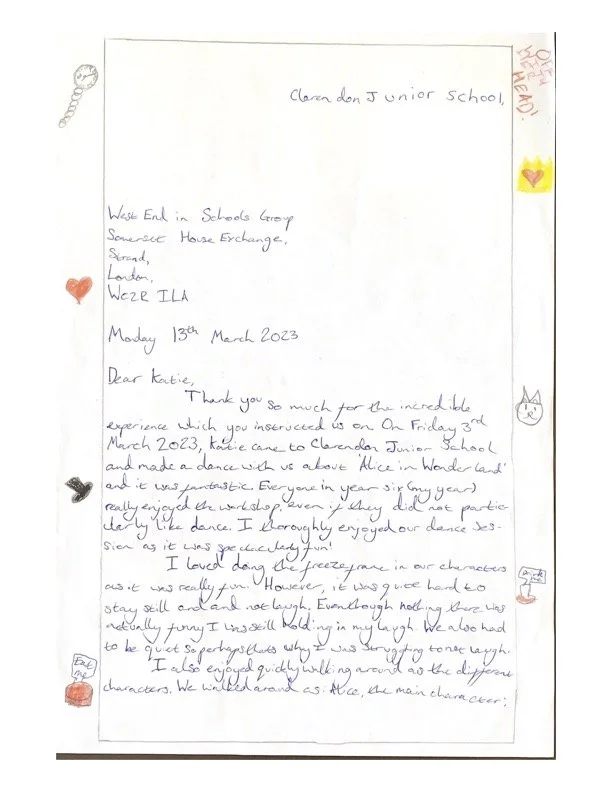 OFF
WITH
HER
HEAD!
Clarendon Junior School,
West End in Schools Group
Somerset House Exchange,
Strand,
London,
WC2R ILA
Monday 13th March 2023
Dear Katie,
Thank you so much for the incredible
experience which you instructed us on. On Friday 3rd
March 2023, Katie came to Clarendon Junior School
and made a dance with us about 'Alice in Wonderland'
and it was fantastic. Everyone in year six (my year)
really enjoyed the workshop, even if they did not partic-
ularly like dance. I thoroughly enjoyed our dance ses-
sion as it was spectacularly fun!
I loved doing the freezeframe in our characters
as it was really fun. However, it was quite hard to
stay still and and not laugh. Eventhough nothing there was
actually funny I was still holding in my laugh. We also had
to be quiet so perhaps thats why I was struggling to not laugh.
I also enjoyed quickly walking around as the different
characters. We walked around as: Alice, the main character;
Drink
me
Eat
me